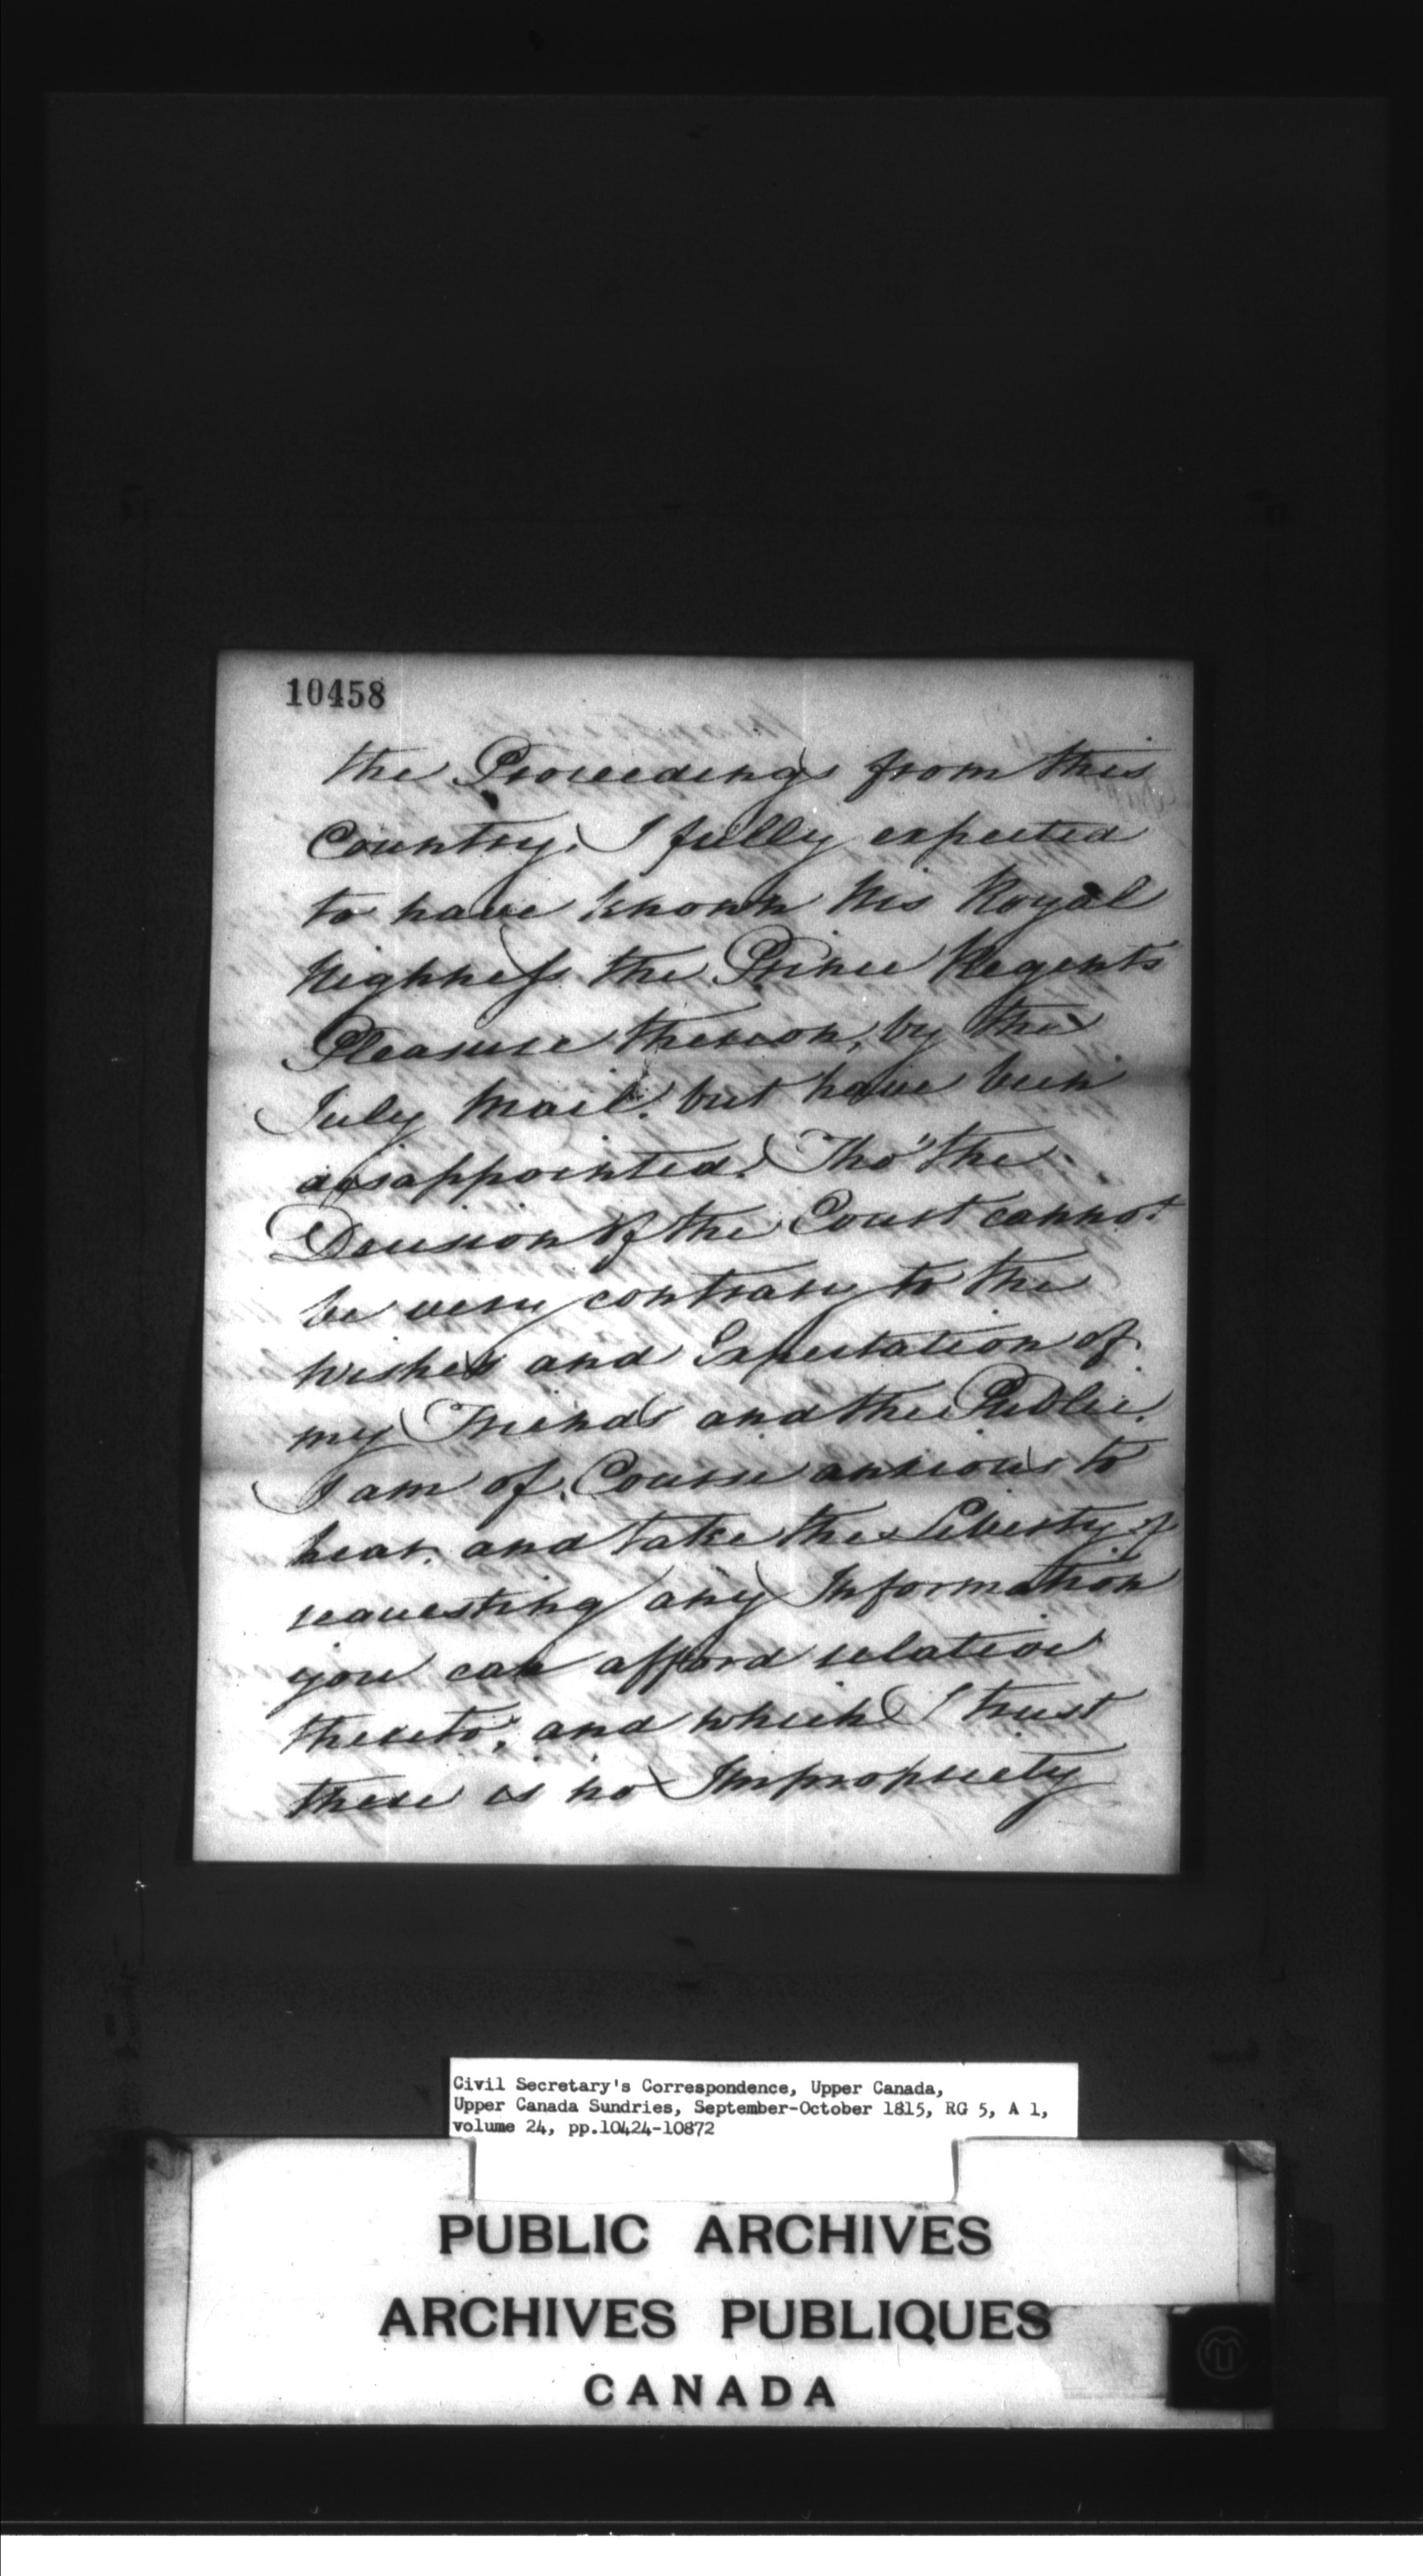 10458
the Proceedings from this
Country. I fully expected
to have known his Royal
Highness the Prince Regents
Pleasure thereon, by the
July Mail. but have been
disappointed. Tho' the
Decision of the Court cannot
be very contrary to the
wishes and Expectation of
my Friends and the Public.
I am of Course anxious to
hear. and take the Liberty of
requesting any Information
you can afford relative
thereto, and which I trust
there is no Impropriety
Civil Secretary's Correspondence, Upper Canada,
Upper Canada Sundries, September-October 1815, RG 5, A 1,
volume 24, pp.10424-10872
PUBLIC ARCHIVES
ARCHIVES PUBLIQUES
CANADA